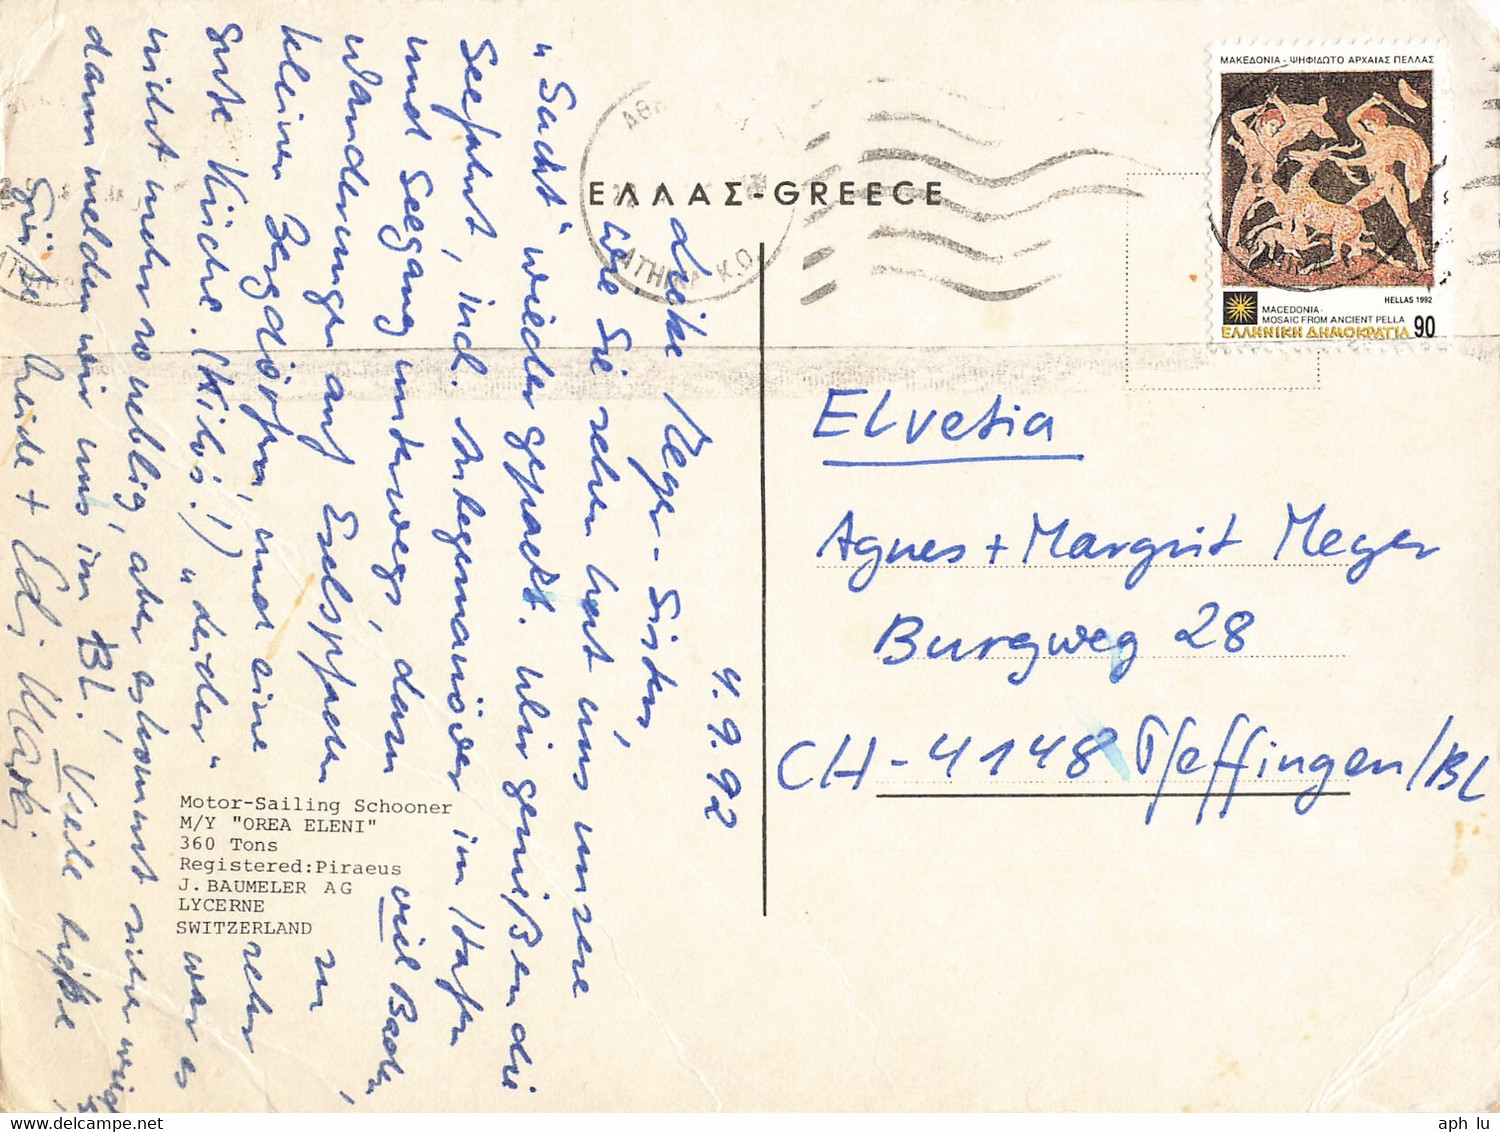 4.9.92
Liebe Meyer-Sisters,
wie Sie sehen hat uns unsere
"Sucht" wieder gepackt. Wir genießen die
Seefahrt, incl. Anlegemanöver im Hafen
und Seegang unterwegs, dann viel Baden,
Wanderungen auf Eselspfaden zu
kleinen Bergdörfern und eine sehr
gute Küche. (Kilo's!) "Leider" war es
nicht mehr so neblig, aber es kommt sicher wieder
dann melden wir uns im BL. Viele liebe
Grüße Heide + Edi
Motor-Sailing Schooner
M/Y "OREA ELENI"
360 Tons
Registered:Piraeus
J.BAUMELER AG
LYCERNE
SWITZERLAND
ΕΛΛΑΣ-GREECE
ΑΤΗΙΝΑ Κ.Ο
ΜΑΚΕΔΟΝΙΑ - ΨΗΦΙΔΩΤΟ ΑΡΧΑΙΑΣ ΠΕΛΛΑΣ
HELLAS 1992
MACEDONIA-
MOSAIC FROM ANCIENT PELLA
ΕΛΛΗΝΙΚΗ ΔΗΜΟΚΡΑΤΙΑ 90
Elvetia
Agnes + Margrit Meyer
Burgweg 28
CH-4148 Pfeffingen/BL
aph lu